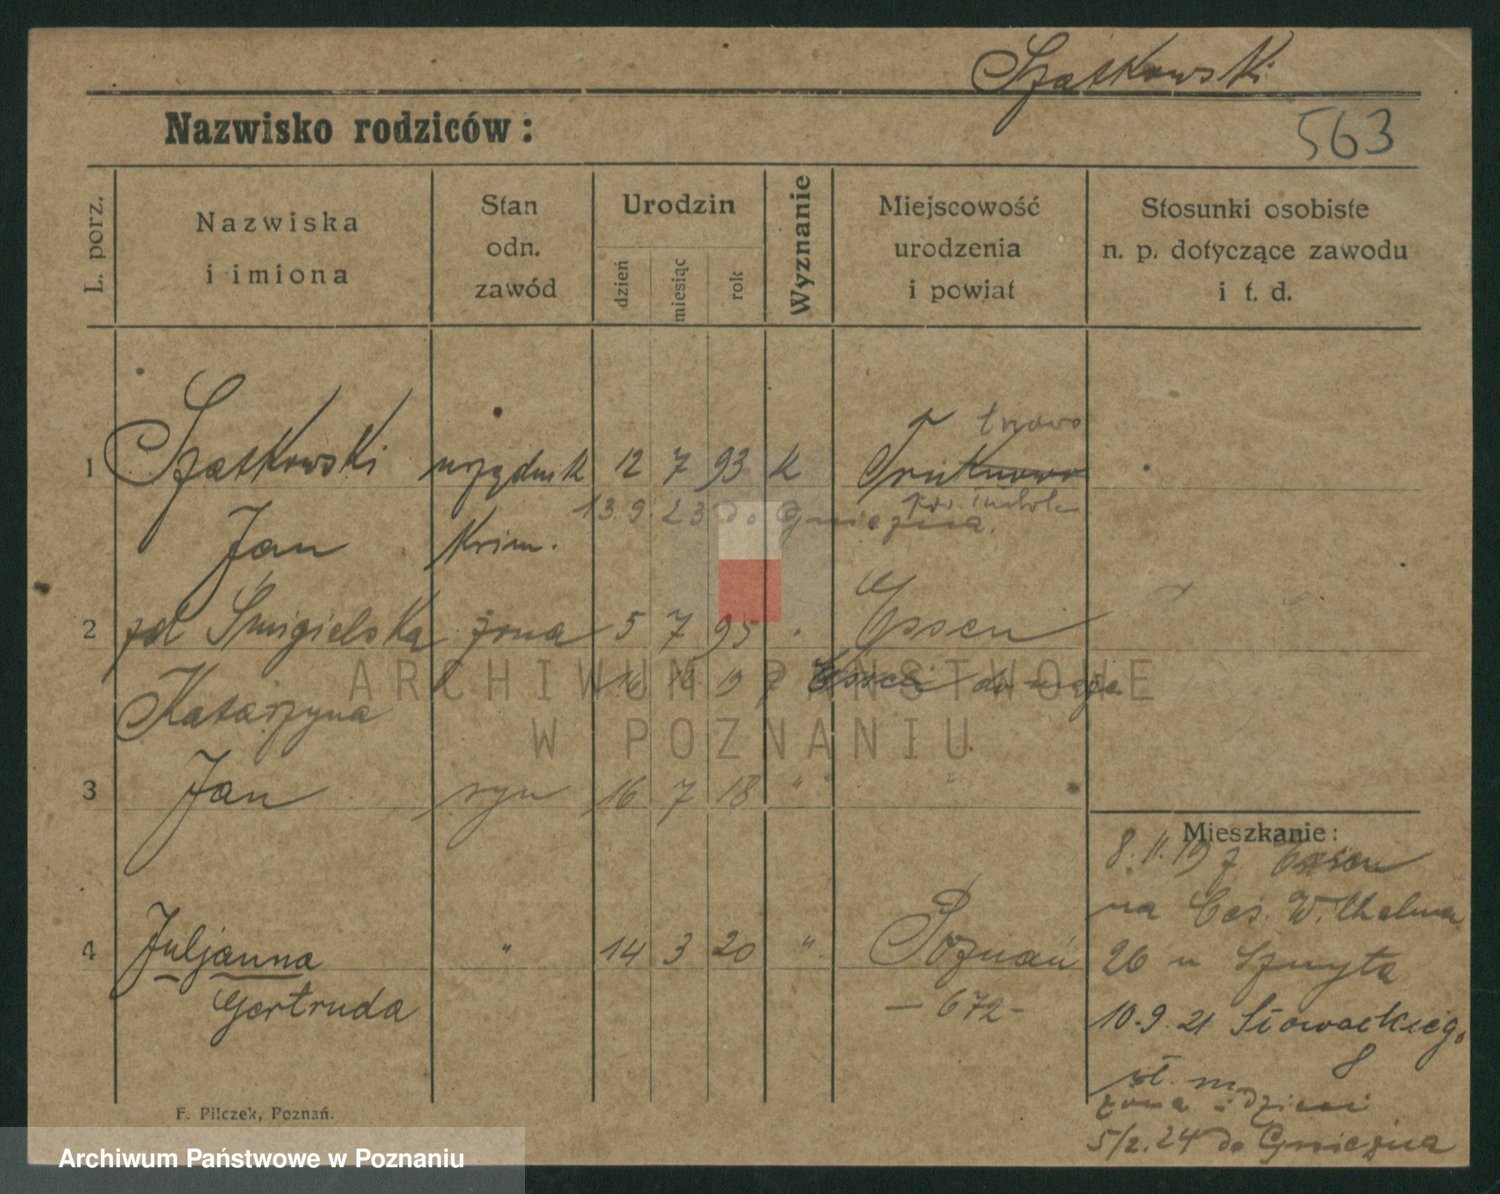 Szatkowski
Nazwisko rodziców:
563
L. porz.
Nazwiska
i imiona
Stan
odn.
zawód
Urodzin
dzień
miesiąc
rok
Wyznanie
Miejscowość
urodzenia
i powiat
Stosunki osobiste
n. p. dotyczące zawodu
i t. d.
1 Szatkowski 12 7 93 k
13. 9 23 do Gniezna.
Jan Krim.
2 Śmigielska żona 5 7 95 Essen
Katarzyna
3 Jan syn 16 7 18 " "
Mieszkanie:
8. 11. 19 z Essen
na Ces. Wilhelma
4 Juljanna " 14 3 20 " Poznań
26 u Szmyta
Gertruda
- 672 -
10. 9. 21 Słowackiego
8
żona i dzieci
5/2. 24 do Gniezna
F. Pilczek, Poznań.
ARCHIWUM PAŃSTWOWE
W POZNANIU
Archiwum Państwowe w Poznaniu